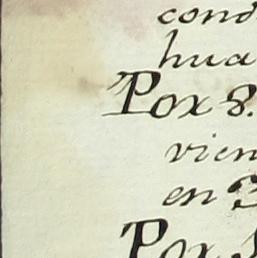 cond
hua
Por 8.
vien
en 3
Por